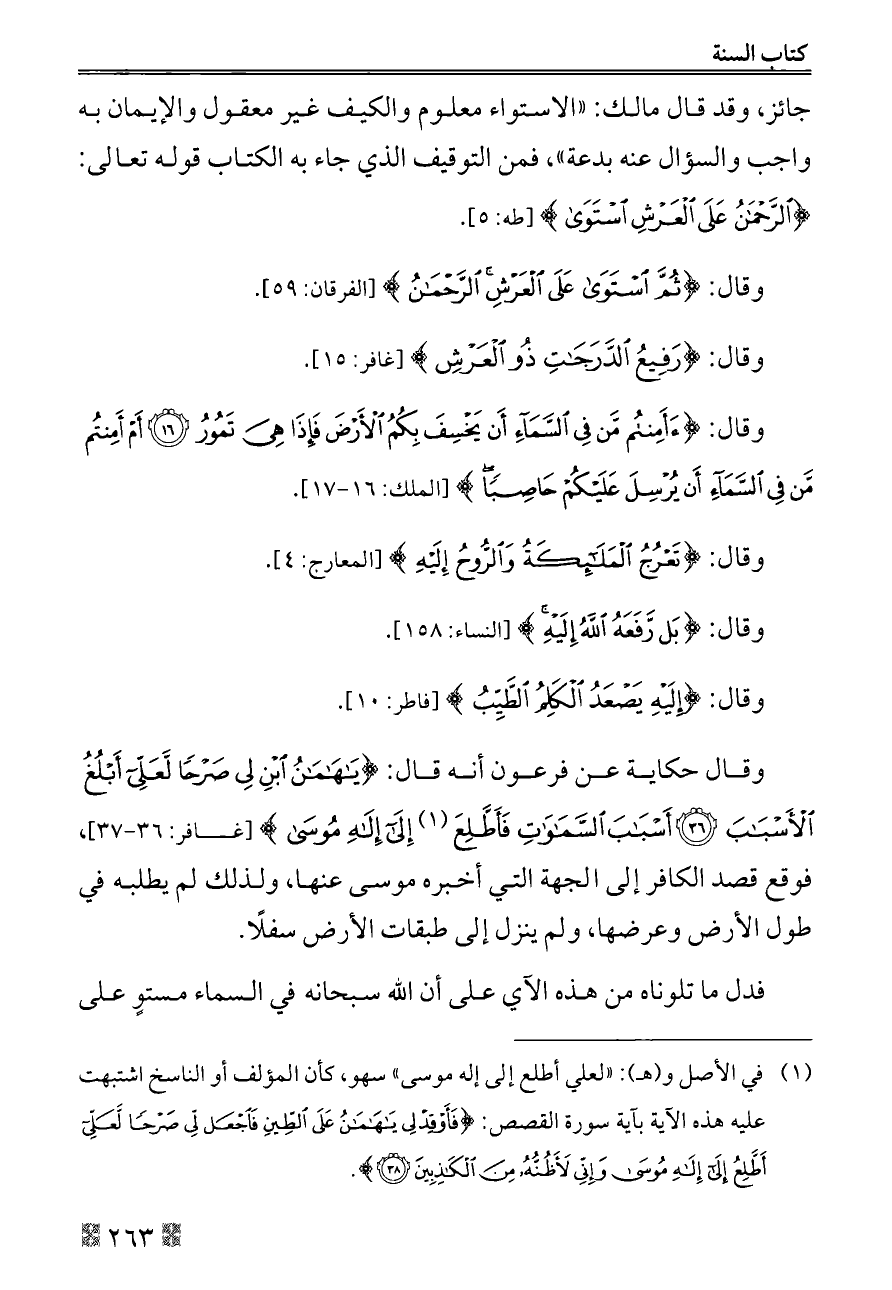 كتاب السنة
جائز، وقد قال مالك: «الاستواء معلوم والكيف غير معقول والإيمان به
واجب والسؤال عنه بدعة»، فمن التوقيف الذي جاء به الكتاب قوله تعالى:
﴿ٱلرَّحْمَٰنُ عَلَى ٱلْعَرْشِ ٱسْتَوَىٰ﴾ [طه: ٥].
وقال: ﴿ثُمَّ ٱسْتَوَىٰ عَلَى ٱلْعَرْشِ ۚ ٱلرَّحْمَٰنُ﴾ [الفرقان: ٥٩].
وقال: ﴿رَفِيعُ ٱلدَّرَجَٰتِ ذُو ٱلْعَرْشِ﴾ [غافر: ١٥].
وقال: ﴿ءَأَمِنتُم مَّن فِى ٱلسَّمَآءِ أَن يَخْسِفَ بِكُمُ ٱلْأَرْضَ فَإِذَا هِىَ تَمُورُ ١٦ أَمْ أَمِنتُم
مَّن فِى ٱلسَّمَآءِ أَن يُرْسِلَ عَلَيْكُمْ حَاصِبًا ۖ﴾ [الملك: ١٦-١٧].
وقال: ﴿تَعْرُجُ ٱلْمَلَٰٓئِكَةُ وَٱلرُّوحُ إِلَيْهِ﴾ [المعارج: ٤].
وقال: ﴿بَل رَّفَعَهُ ٱللَّهُ إِلَيْهِ ۚ﴾ [النساء: ١٥٨].
وقال: ﴿إِلَيْهِ يَصْعَدُ ٱلْكَلِمُ ٱلطَّيِّبُ﴾ [فاطر: ١٠].
وقال حكاية عن فرعون أنه قال: ﴿يَٰهَٰمَٰنُ ٱبْنِ لِى صَرْحًا لَّعَلِّىٓ أَبْلُغُ
ٱلْأَسْبَٰبَ ٣٦ أَسْبَٰبَ ٱلسَّمَٰوَٰتِ فَأَطَّلِعَ (١) إِلَىٰٓ إِلَٰهِ مُوسَىٰ﴾ [غافر: ٣٦-٣٧]،
فوقع قصد الكافر إلى الجهة التي أخبره موسى عنها، ولذلك لم يطلبه في
طول الأرض وعرضها، ولم ينزل إلى طبقات الأرض سفلًا.
فدل ما تلوناه من هذه الآي على أن الله سبحانه في السماء مستوٍ على
(١) في الأصل و(هـ): «لعلي أطلع إلى إله موسى» سهو، كأن المؤلف أو الناسخ اشتبهت
عليه هذه الآية بآية سورة القصص: ﴿فَأَوْقِدْ لِى يَٰهَٰمَٰنُ عَلَى ٱلطِّينِ فَٱجْعَل لِّى صَرْحًا لَّعَلِّىٓ
أَطَّلِعُ إِلَىٰٓ إِلَٰهِ مُوسَىٰ وَإِنِّى لَأَظُنُّهُۥ مِنَ ٱلْكَٰذِبِينَ ٣٨﴾.
٢٦٣